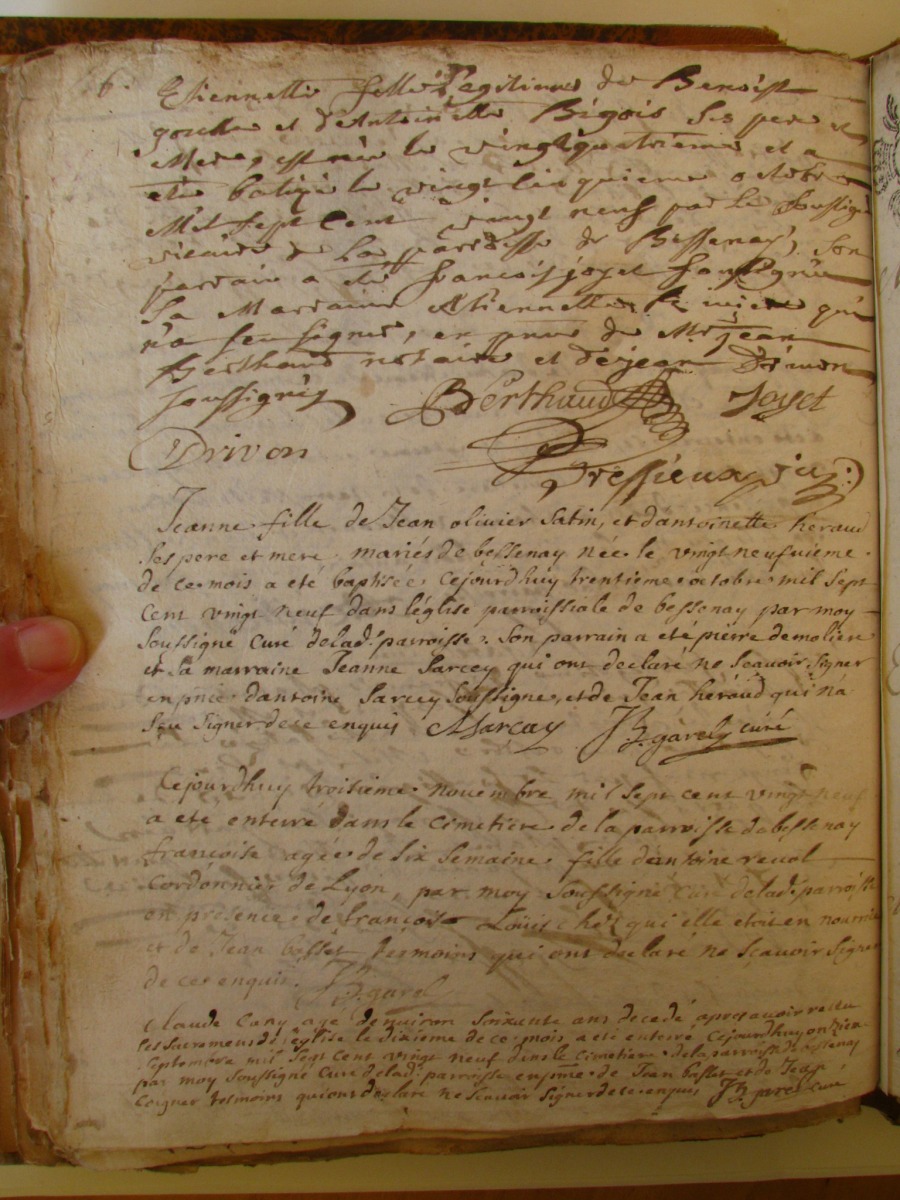 6.
Etiennette fille légitime de Benoist
goutte et d'Antoinette Bigois ses pere et
Mere, est née le vingtquatrieme et a
eté batisé le vingt cinquieme octobre
Mil sept Cent vingt neuf par le soussigné
vicaire de La parroisse de Bessenay, son
parrain a eté francois joyet soussigné
Sa Marraine Etiennette qui
n'a sceu signer, en pnce de Mr. jean
Berthaud notaire et de jean Drivon
soussignés Berthaud Joyet
Drivon
Bressieux vic:
Jeanne fille de Jean olivier Satin, et d'antoinette heraud
ses pere et mere mariés de bessenay née le vingt neufvieme
de ce mois a eté baptisée cejourdhuy trentieme octobre mil sept
cent vingt neuf dans l'église parroissiale de bessenay par moy
soussigné curé deladt. parroisse. Son parrain a eté pierre demoliere
et la marraine Jeanne Sarcey qui ont declaré ne scavoir signer
en pnce d'antoine Sarcey soussigné, et de Jean héraud qui n'a
sçu signer de ce enquis A Sarcay JB garel curé
Cejourdhuy troisieme novembre mil sept cent vingt neuf
a eté enterré dans le cimetiere de la parroisse de bessenay
francoise agée de six semaine fille d'antoine revol
Cordonnier de Lyon, par moy soussigné curé deladt parroisse
en présence de françois Louis chéz qui elle etoit en nourrice
et de Jean basset tesmoins qui ont declaré ne sçavoir signer
de ce enquis. JB. garel
Claude Cany agé d'environ soixante ans decedé apres avoir recu
les sacremens de l'église le dixieme de ce mois a eté enterré cejourdhuy onzien
septembre mil sept cent vingt neuf dans le cimetiere de la parroisse de bessenay
par moy soussigné curé deladt. parroisse en pnce de Jean basset et de Jean
Coigner tesmoins qui ont declaré ne scavoir signer de ce enquis JB garel curé